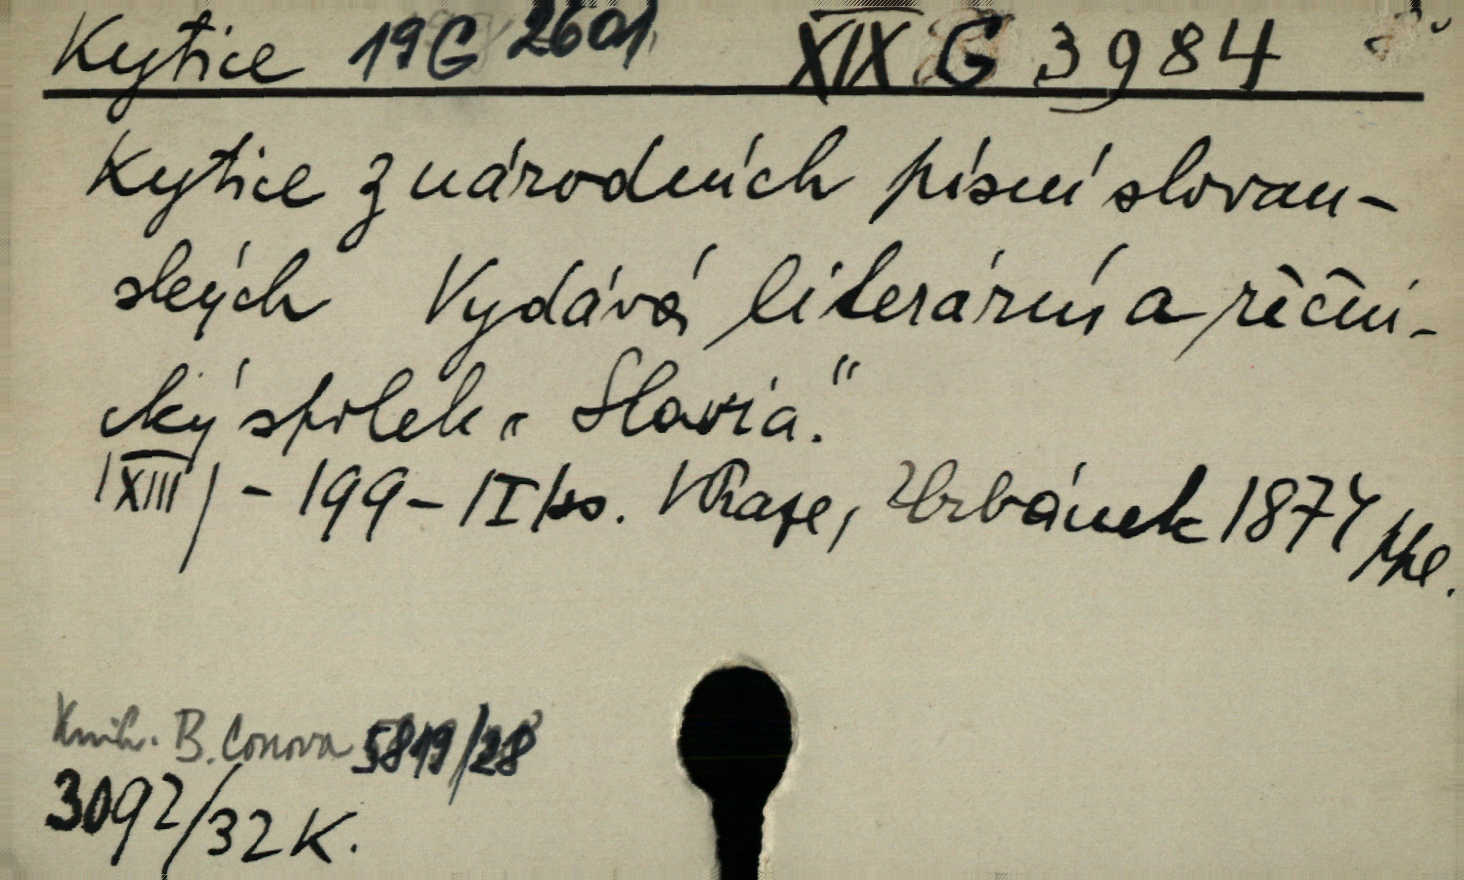 Kytice 19G 2601 XIX G 3984
Kytice z národních písní slovan-
ských Vydává literární a řečni-
cký spolek „Slavia."
/XIII/ - 199 - /I/ s. V Praze, Urbánek 1874
Knih. B. Conova 5819/28
3092/32 K.